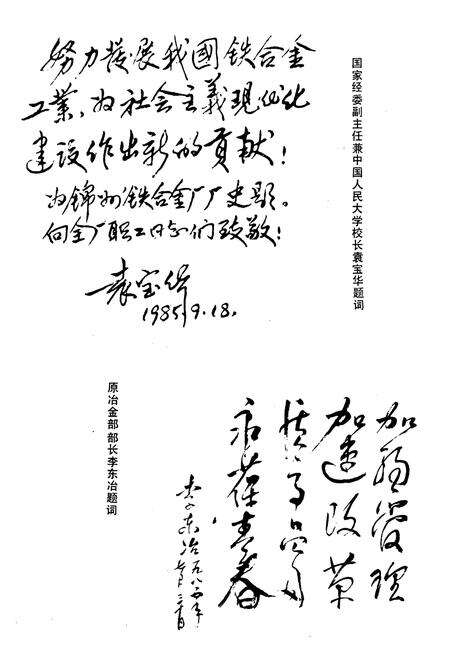 努力發展我國铁合金
工業，为社会主義现代化
建设作出新的貢献！
为锦州铁合金厂厂史题。
向全厂职工同志们致敬！
袁宝华
1985.9.18.
国家经委副主任兼中国人民大学校长袁宝华题词
加强管理
加速改革
永葆青春
李东冶
原冶金部部长李东冶题词